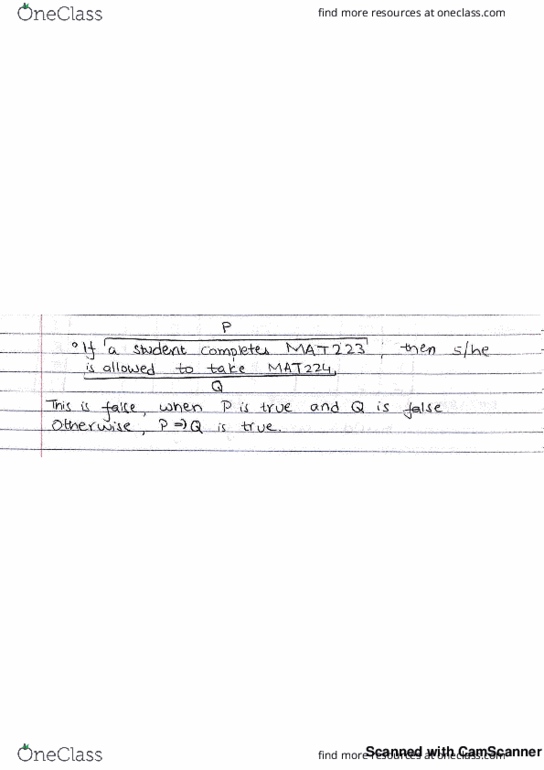 OneClass
find more resources at oneclass.com
P
°If a student completes MAT223, then s/he
is allowed to take MAT224.
Q
This is false, when P is true and Q is false
Otherwise, P ⇒ Q is true.
OneClass
find more resources at oneclass.com
Scanned with CamScanner